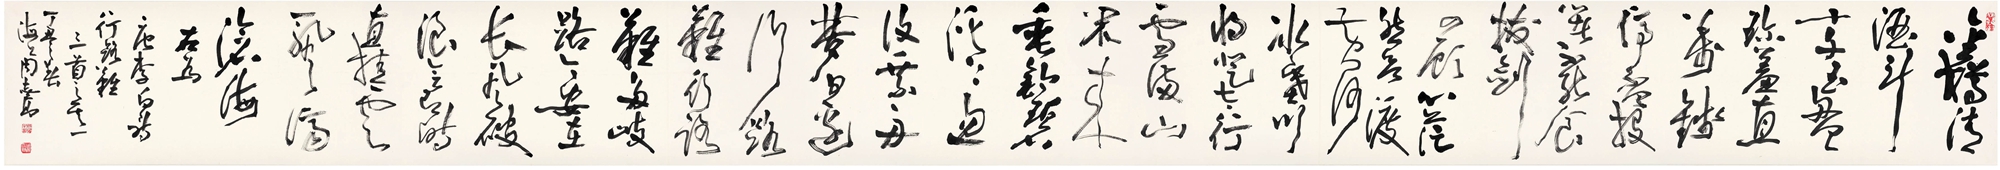 金樽清
酒斗
十千玉盤
珍羞直
萬錢
停杯投
箸不能食
拔劍
四顧心茫
然欲渡
黃河
冰塞川
將登太行
雪滿山
閒來
垂釣碧
溪上忽
復乘舟
夢日邊
行路
難行路
難多歧
路今安在
長風破
浪會有時
直掛雲
帆濟
滄海
右為
唐李白詩
行路難
三首之其一
海上周志高